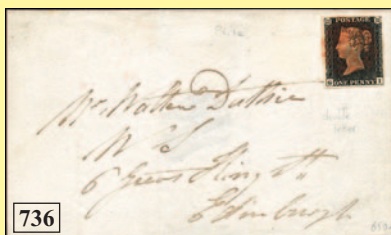 POSTAGE
ONE PENNY
Mr. Walter Duthie
W S
6 Great King St
Edinburgh
736